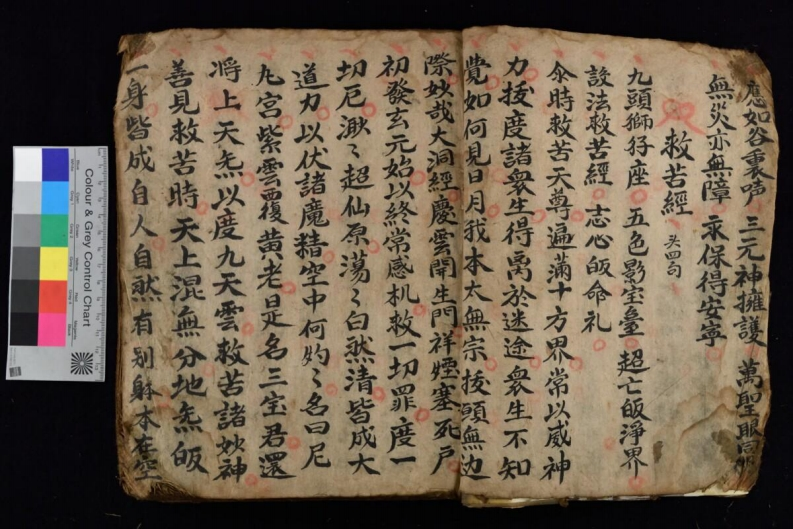 應如谷裏声 三元神擁護 萬聖眼同
無災亦無障 永保得安寧
救苦經 头四句
九頭獅子座 五色影宝臺 超亡皈淨界
設法救苦經 志心皈命礼
尒時救苦天尊遍滿十方界常以威神
力拔度諸衆生得离於迷途衆生不知
覺如何見日月我本太無宗拔頭無边
際妙哉大洞經慶雲開生門祥煙塞死户
初發玄元始以終常感机救一切罪度一
切厄渺々超仙原蕩々白然清皆成大
道力以伏諸魔精空中何灼々名曰尼
九宮紫雲覆黄老是名三宝君還
将上天炁以度九天雲救苦諸妙神
善見救苦時天上混無分地炁皈
一身皆成自人自然有别躰本在空
Colour & Grey Control Chart